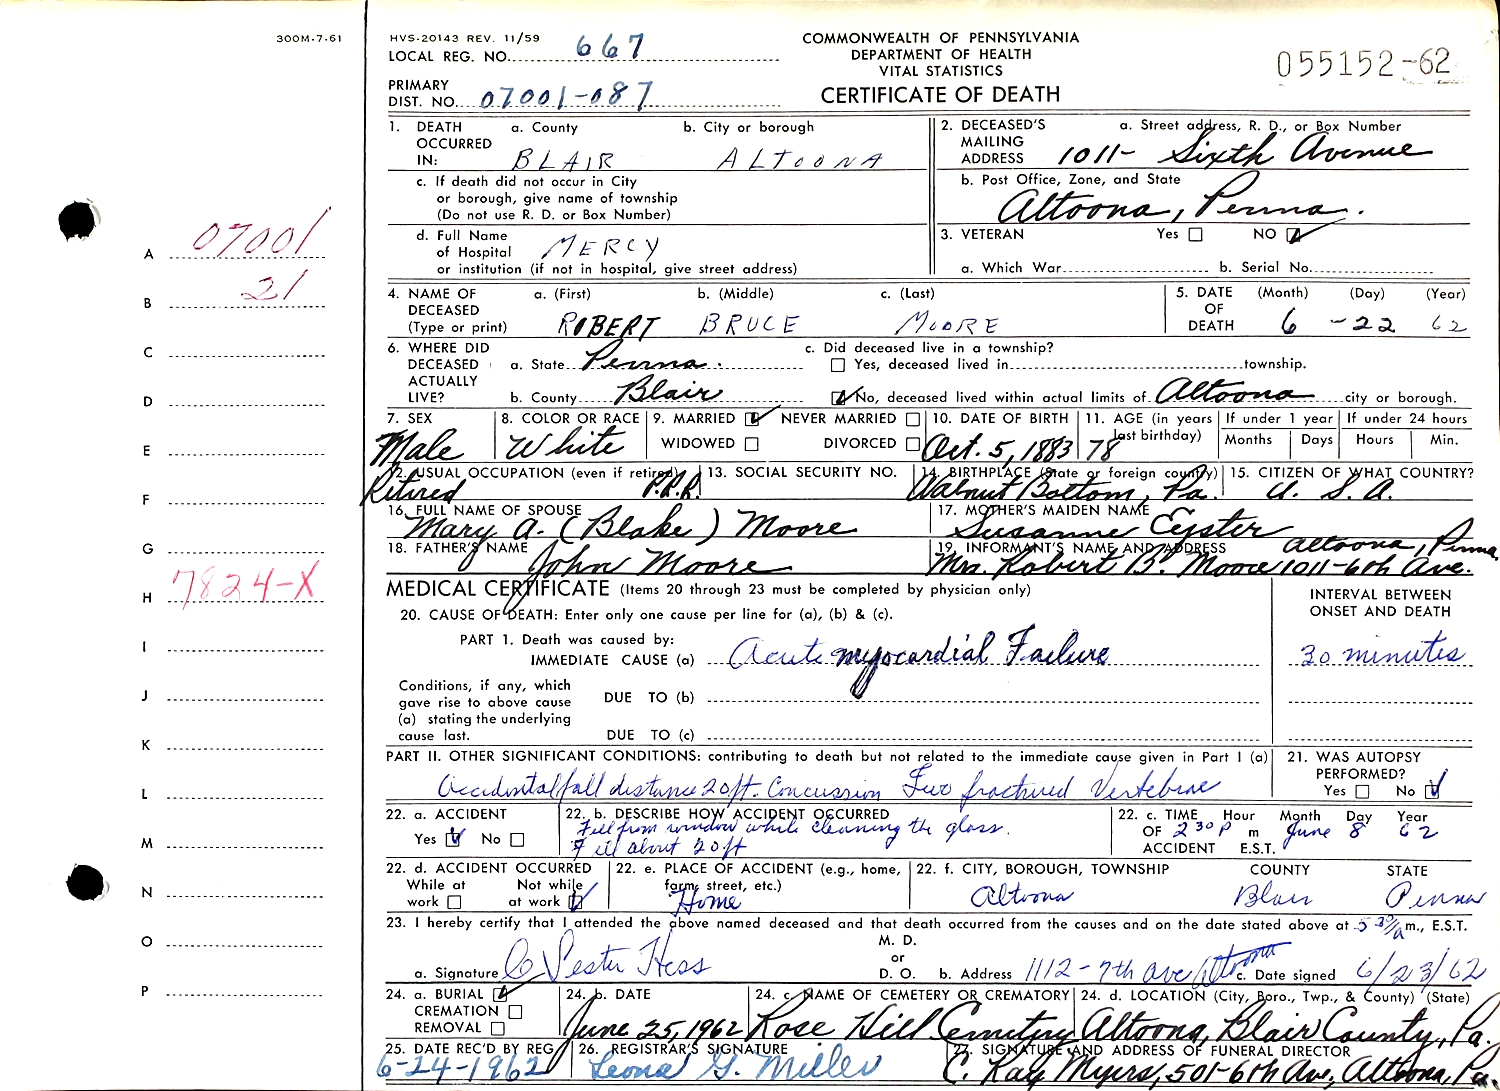 300M-7-61
HVS-20143 REV. 11/59
LOCAL REG. NO. 667
PRIMARY
DIST. NO. 07001-087
COMMONWEALTH OF PENNSYLVANIA
DEPARTMENT OF HEALTH
VITAL STATISTICS
CERTIFICATE OF DEATH
055152-62
1. DEATH OCCURRED IN: a. County BLAIR b. City or borough ALTOONA
c. If death did not occur in City
or borough, give name of township
(Do not use R. D. or Box Number)
d. Full Name of Hospital MERCY
or institution (if not in hospital, give street address)
2. DECEASED'S MAILING ADDRESS a. Street address, R. D., or Box Number 1011- Sixth Avenue
b. Post Office, Zone, and State
Altoona, Penna.
3. VETERAN Yes NO
a. Which War b. Serial No.
4. NAME OF DECEASED (Type or print) a. (First) ROBERT b. (Middle) BRUCE c. (Last) MOORE
5. DATE OF DEATH (Month) 6 (Day) -22 (Year) 62
6. WHERE DID DECEASED ACTUALLY LIVE? a. State Penna.
b. County Blair
c. Did deceased live in a township?
Yes, deceased lived in township.
No, deceased lived within actual limits of Altoona city or borough.
7. SEX Male
8. COLOR OR RACE White
9. MARRIED NEVER MARRIED
WIDOWED DIVORCED
10. DATE OF BIRTH Oct. 5, 1883
11. AGE (in years last birthday) 78
If under 1 year If under 24 hours
Months Days Hours Min.
12. USUAL OCCUPATION (even if retired) Retired P.R.R.
13. SOCIAL SECURITY NO.
14. BIRTHPLACE (State or foreign county) Walnut Bottom, Pa.
15. CITIZEN OF WHAT COUNTRY? U. S. A.
16. FULL NAME OF SPOUSE
Mary A. (Blake) Moore
17. MOTHER'S MAIDEN NAME
Susanne Eyster
18. FATHER'S NAME John Moore
19. INFORMANT'S NAME AND ADDRESS Altoona, Penna.
Mrs. Robert B. Moore 1011-6th Ave.
MEDICAL CERTIFICATE (Items 20 through 23 must be completed by physician only)
20. CAUSE OF DEATH: Enter only one cause per line for (a), (b) & (c).
INTERVAL BETWEEN
ONSET AND DEATH
PART 1. Death was caused by:
IMMEDIATE CAUSE (a) Acute myocardial Failure 30 minutes
Conditions, if any, which
gave rise to above cause
(a) stating the underlying
cause last.
DUE TO (b)
DUE TO (c)
PART II. OTHER SIGNIFICANT CONDITIONS: contributing to death but not related to the immediate cause given in Part I (a)
Accidental fall distance 20 ft. Concussion Two fractured Vertebrae
21. WAS AUTOPSY
PERFORMED?
Yes No
22. a. ACCIDENT
Yes No
22. b. DESCRIBE HOW ACCIDENT OCCURRED
Fell from window while cleaning the glass.
Fell about 20 ft
22. c. TIME OF ACCIDENT Hour 2 30 P m E.S.T. Month June Day 8 Year 62
22. d. ACCIDENT OCCURRED
While at work Not while at work
22. e. PLACE OF ACCIDENT (e.g., home,
farm, street, etc.)
Home
22. f. CITY, BOROUGH, TOWNSHIP COUNTY STATE
Altoona Blair Penna
23. I hereby certify that I attended the above named deceased and that death occurred from the causes and on the date stated above at 5 30/a m., E.S.T.
a. Signature C Vester Hess M. D. or D. O. b. Address 1112-7th ave Altoona c. Date signed 6/23/62
24. a. BURIAL
CREMATION
REMOVAL
24. b. DATE
June 25, 1962
24. c. NAME OF CEMETERY OR CREMATORY
Rose Hill Cemetery
24. d. LOCATION (City, Boro., Twp., & County) (State)
Altoona, Blair County, Pa.
25. DATE REC'D BY REG.
6-24-1962
26. REGISTRAR'S SIGNATURE
Leona G. Miller
27. SIGNATURE AND ADDRESS OF FUNERAL DIRECTOR
C. Kay Myers, 501-6th Ave, Altoona, Pa.
A 07001
B 21
C
D
E
F
G
H 7824-X
I
J
K
L
M
N
O
P